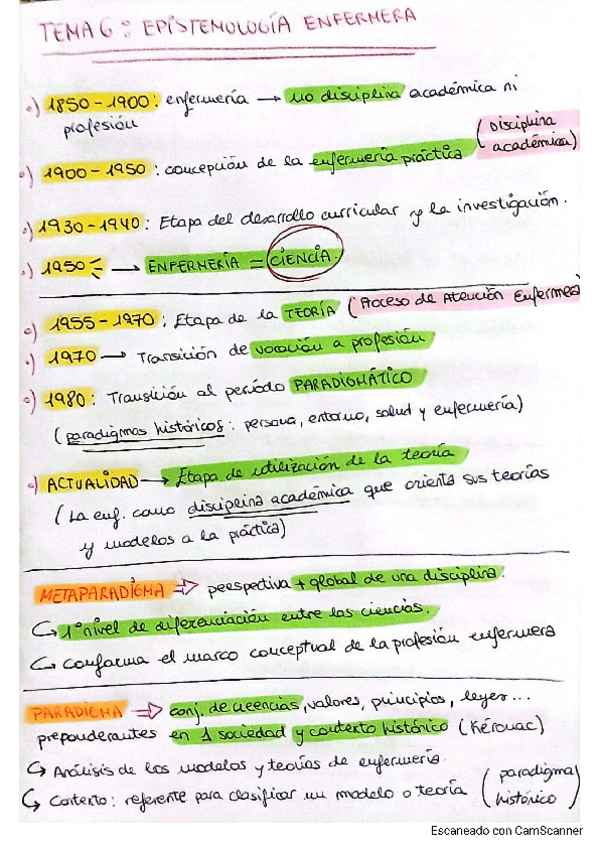 TEMA 6: EPISTEMOLOGÍA ENFERMERA
•) 1850-1900: enfermería → no disciplina académica ni
profesión
•) 1900-1950: concepción de la enfermería práctica (Disciplina
académica)
•) 1930-1940: Etapa del desarrollo curricular y la investigación.
•) 1950 → ENFERMERÍA = CIENCIA.
•) 1955-1970: Etapa de la TEORÍA (Proceso de Atención Enfermera
•) 1970 → Transición de vocación a profesión
•) 1980: Transición al período PARADIGMÁTICO
(paradigmas históricos: persona, entorno, salud y enfermería)
•) ACTUALIDAD → Etapa de utilización de la teoría
(La enf. como disciplina académica que orienta sus teorías
y modelos a la práctica)
METAPARADIGMA ⇒ perspectiva + global de una disciplina.
↳ 1º nivel de diferenciación entre las ciencias.
↳ Conforma el marco conceptual de la profesión enfermera
PARADIGMA ⇒ conj. de creencias, valores, principios, leyes...
preponderantes en 1 sociedad y contexto histórico (Kérouac)
↳ Análisis de los modelos y teorías de enfermería.
↳ Contexto: referente para clasificar un modelo o teoría (paradigma
histórico)
Escaneado con CamScanner